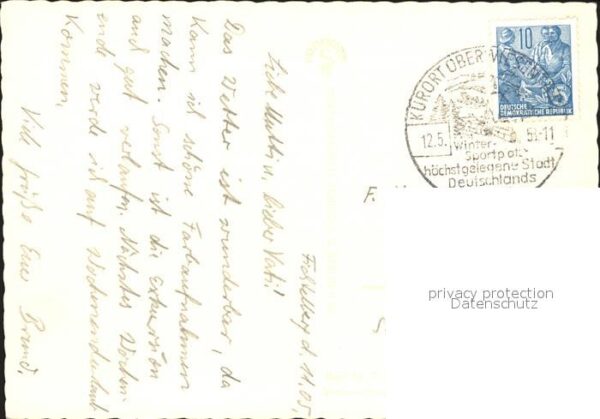 Fichtelberg d. 11.05
Liebe Mutti u. lieber Vati!
Das Wetter ist wunderbar, da
kann ich schöne Farbaufnahmen
machen. Sonst ist die Exkursion
auch gut verlaufen. Nächstes Wochen-
ende werde ich auf
kommen.
Viele Grüße Euer Bernd.
10
DEUTSCHE
DEMOKRATISCHE REPUBLIK
KURORT OBERWIESENTHAL
12.5. 59.-11
Winter-
Sportplatz
höchstgelegene Stadt
Deutschlands
F.
privacy protection
Datenschutz